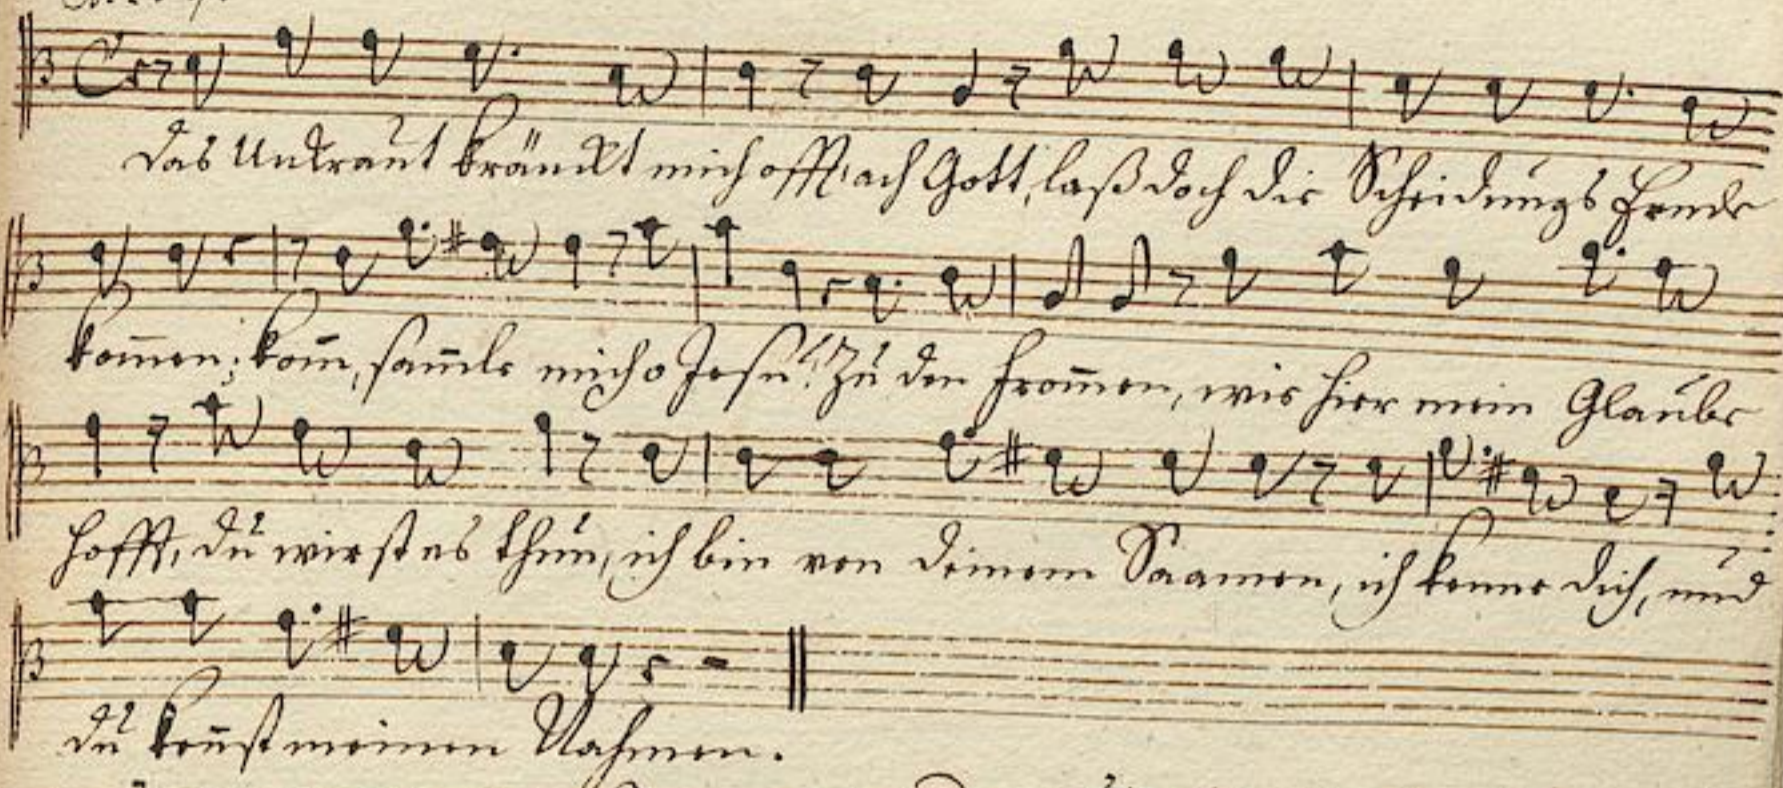 Das Unkraut kränckt mich offt, ach Gott, laß doch die Scheidungs Ernde
kom̄en; kom̄, sam̄le mich o Jesu! zu den From̄en, wie hier mein Glaube
hofft, du wirst es thun, ich bin von deinem Saamen, ich kenne dich, und
du keñst meinen Nahmen.